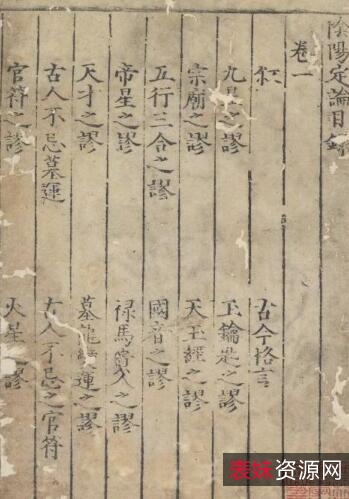 陰陽定論目録
卷一
紅 古今格言
九星之謬 玉鑰匙之謬
宗廟之謬 天玉經之謬
五行三合之謬 國音之謬
帝星之謬 禄馬貴人之謬
天才之謬 墓龍變運之謬
古人不忌墓運 古人不忌之官符
官符之謬 火星之謬
表妹资源网